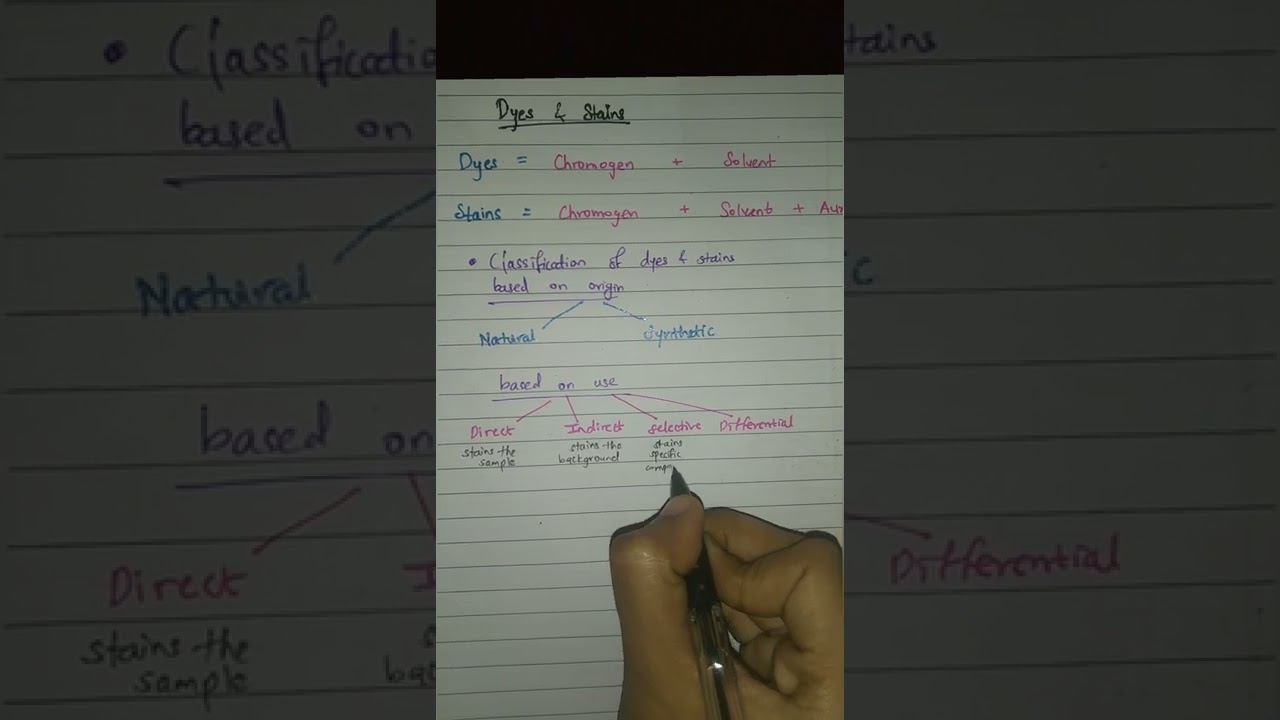 Dyes & Stains
Dyes = Chromogen + Solvent
Stains = Chromogen + Solvent + Aux
• Classification of dyes & stains
based on origin
Natural Synthetic
based on use
Direct Indirect Selective Differential
stains the sample
stains the background
stains specific comp